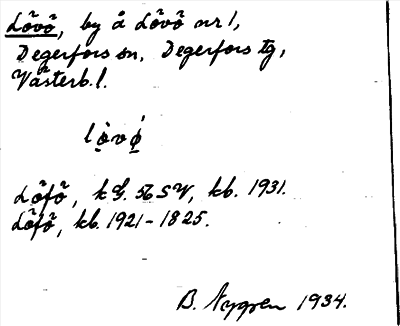 Lövö, by å Lövö nr 1,
Degerfors sn, Degerfors tg,
Västerb. l.
Löfö, kG. 56 SV, kb. 1931.
Löfö, kb. 1921-1825.
B. Nygren 1934.